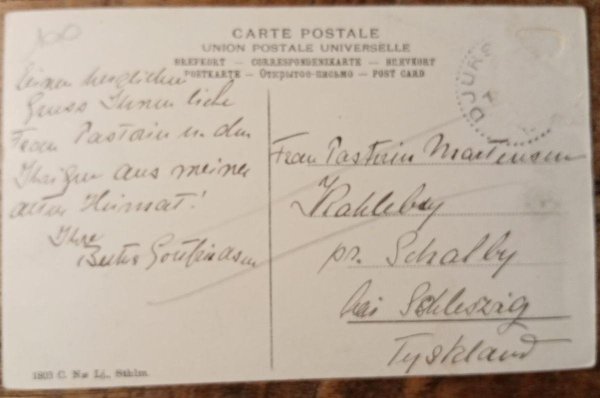 CARTE POSTALE
UNION POSTALE UNIVERSELLE
BREFKORT — CORRESPONDENZKARTE — BREVKORT
POSTKARTE — Открытое-письмо — POST CARD
DJURS
Einen herzlichen
Gruss Ihnen liebe
Frau Pastorin u den
Ihrigen aus meiner
alten Heimat!
Ihre
Frau Pastorin Martensen
Kahleby
pr. Schalby
bei Schleszig
Tyskland
1803 C. N:s Lj., Sthlm.